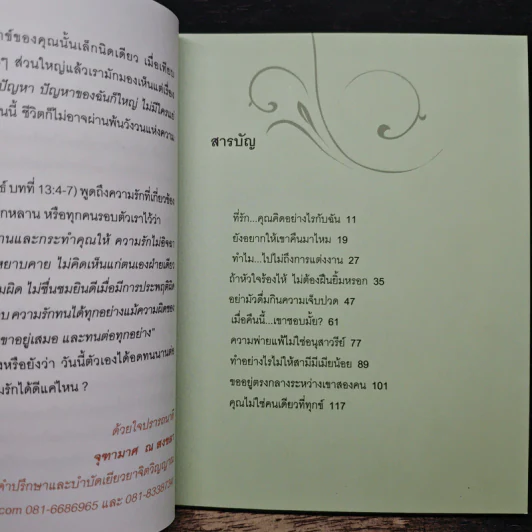 าข์ของคุณนั้นเล็กนิดเดียว เมื่อเทียบ
ๆ ส่วนใหญ่แล้วเรามักมองเห็นแต่เรื่อง
ปัญหา ปัญหาของฉันก็ใหญ่ ไม่มีใคร
นี้ ชีวิตก็ไม่อาจผ่านพ้นวังวนแห่งความ
บทที่ 13:4-7) พูดถึงความรักที่เกี่ยวข้อง
กหลาน หรือทุกคนรอบตัวเราไว้ว่า
านและกระทำคุณให้ ความรักไม่อิจฉา
หยาบคาย ไม่คิดเห็นแก่ตนเองฝ่ายเดียว
ผิด ไม่ชื่นชมยินดีเมื่อมีการประพฤติผิด
ความรักทนได้ทุกอย่างแม้ความผิดของ
อยู่เสมอ และทนต่อทุกอย่าง"
หรือยังว่า วันนี้ตัวเองได้อดทนนานต่อ
รักได้ดีแค่ไหน ?
ด้วยใจปรารถนาดี
จุฑามาศ ณ สงขลา
คำปรึกษาและบำบัดเยียวยาจิตวิญญาณ
com 081-6686965 และ
สารบัญ
ที่รัก...คุณคิดอย่างไรกับฉัน 11
ยังอยากให้เขาคืนมาไหม 19
ทำไม...ไปไม่ถึงการแต่งงาน 27
ถ้าหัวใจร้องไห้ ไม่ต้องฝืนยิ้มหรอก 35
อย่ามัวดื่มกินความเจ็บปวด 47
เมื่อคืนนี้...เขาชอบมั้ย? 61
ความพ่ายแพ้ไม่ใช่อนุสาวรีย์ 77
ทำอย่างไรไม่ให้สามีมีเมียน้อย 89
ขออยู่ตรงกลางระหว่างเขาสองคน 101
คุณไม่ใช่คนเดียวที่ทุกข์ 117